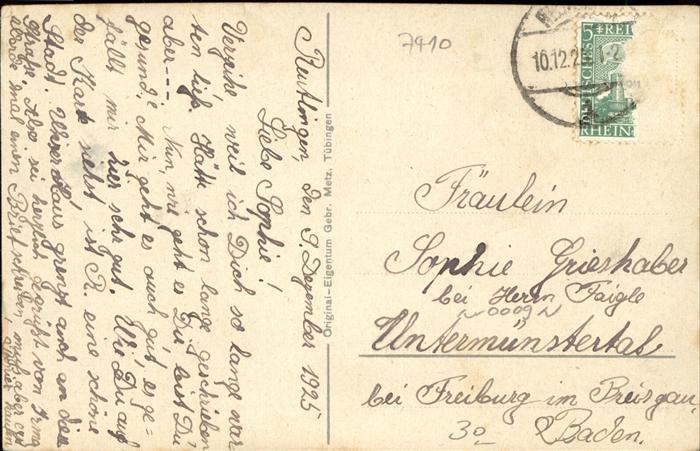 Reutlingen, den 9. Dezember 1925
Liebe Sophie!
Verzeihe weil ich Dich so lange war-
ten ließ. Hätte schon lange geschrieben
aber--- Nun, wie geht es Dir bist Du
gesund. Mir geht es auch gut, es ge-
fällt mir hier sehr gut. Wie Du auf
der Karte siehst ist R. eine schöne
Stadt. Unser Haus grenzt auch an die
Straße. Also sei herzlich gegrüßt von Irma
werde mal einen Brief schreiben, muß aber erst
Papier kaufen
Original-Eigentum Gebr. Metz, Tübingen
7410
10.12.2
1-2
5
REI
RHEIN
Fräulein
Sophie Grieshaber
bei Herrn Faigle
~0009~
Untermünstertal
bei Freiburg im Breisgau
30
Baden.